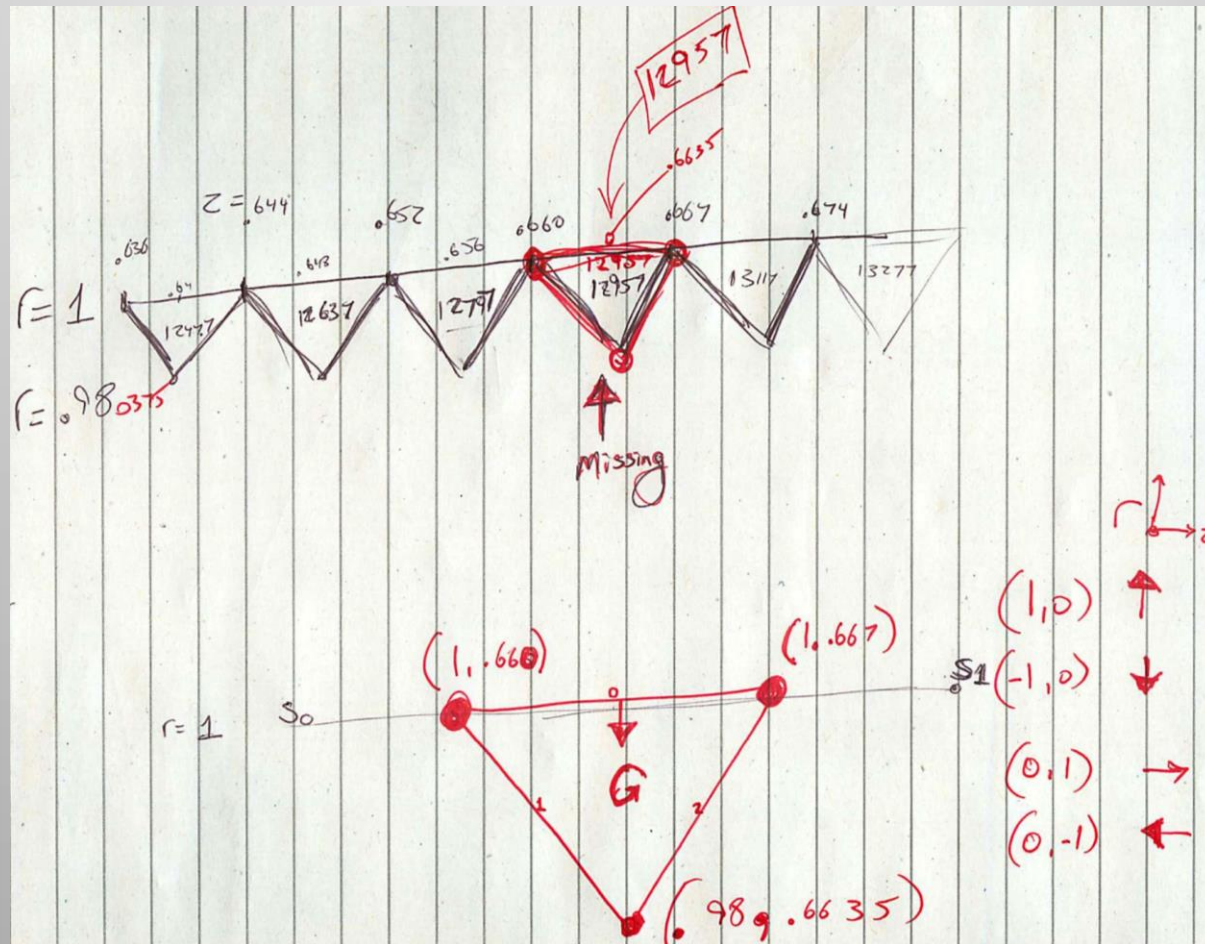 12957
.6635
z = .644
.652
.660
.667
.674
.636
.64
.648
.656
12957
r = 1
12477
12637
12797
12957
13117
13277
r = .980375
Missing
r
z
(1,0)
(1, .660)
(1, .667)
S1
(-1,0)
r = 1
S0
0
G
(0,1)
1
2
(0,-1)
(.98, .6635)